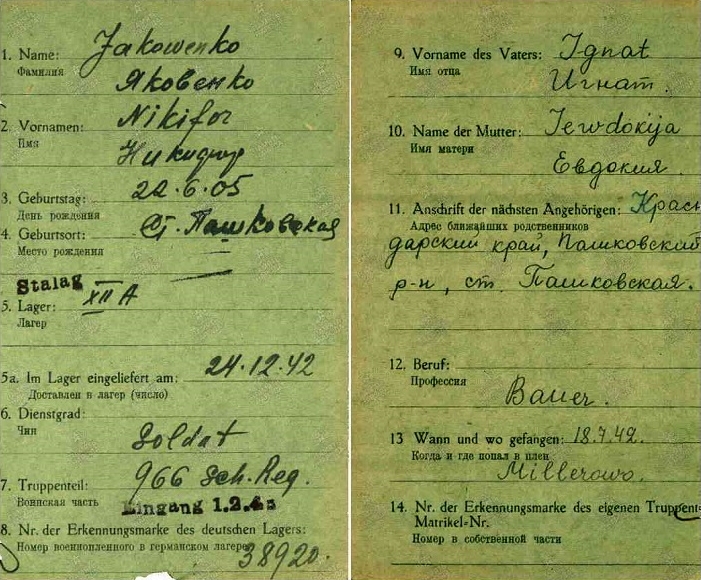 1. Name: Jakowenko
Фамилия Яковенко
2. Vornamen: Nikifor
Имя Никифор
3. Geburtstag: 22.6.05
День рождения
4. Geburtsort: Ст. Пашковская
Место рождения
Stalag
5. Lager: XII A
Лагер
5a. Im Lager eingeliefert am: 24.12.42
Доставлен в лагер (число)
6. Dienstgrad:
Чин Soldat
7. Truppenteil: 966 Sch. Reg.
Воинская часть Eingang 1.2.43
8. Nr. der Erkennungsmarke des deutschen Lagers:
Номер военнопленного в германском лагере 38920.
9. Vorname des Vaters: Ignat
Имя отца Игнат.
10. Name der Mutter: Iewdokija
Имя матери Евдокия.
11. Anschrift der nächsten Angehörigen: Красн
Адрес ближайших родственников
дарский край, Пашковский
р-н, ст. Пашковская.
12. Beruf:
Профессия Bauer.
13 Wann und wo gefangen: 18.7.42.
Когда и где попал в плен
Millerowo.
14. Nr. der Erkennungsmarke des eigenen Truppent=
Matrikel=Nr.
Номер в собственной части